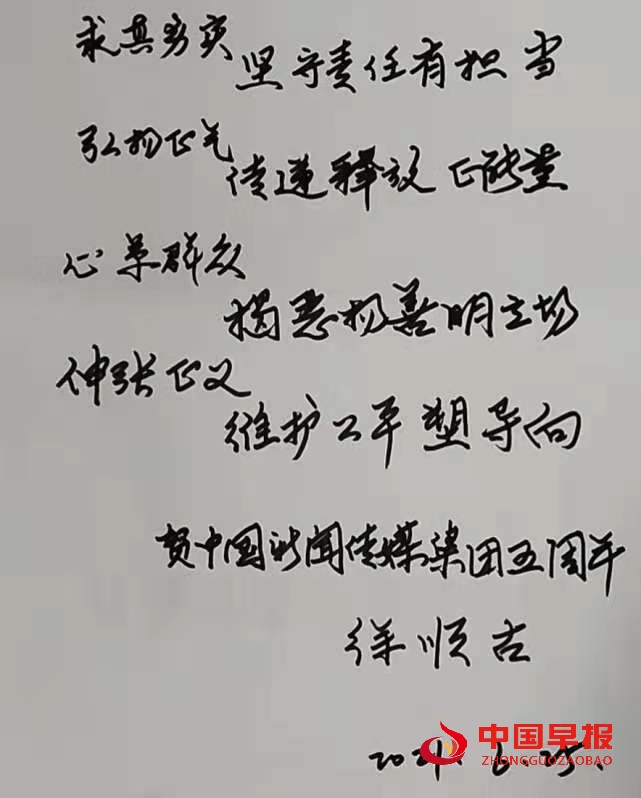 求真务实
坚守责任有担当
弘扬正气
传递释放正能量
心系群众
揭恶扬善明立场
伸张正义
维护公平塑导向
贺中国新闻传媒集团五周年
徐顺古
2021.6.25.
中国早报
ZHONGGUOZAOBAO